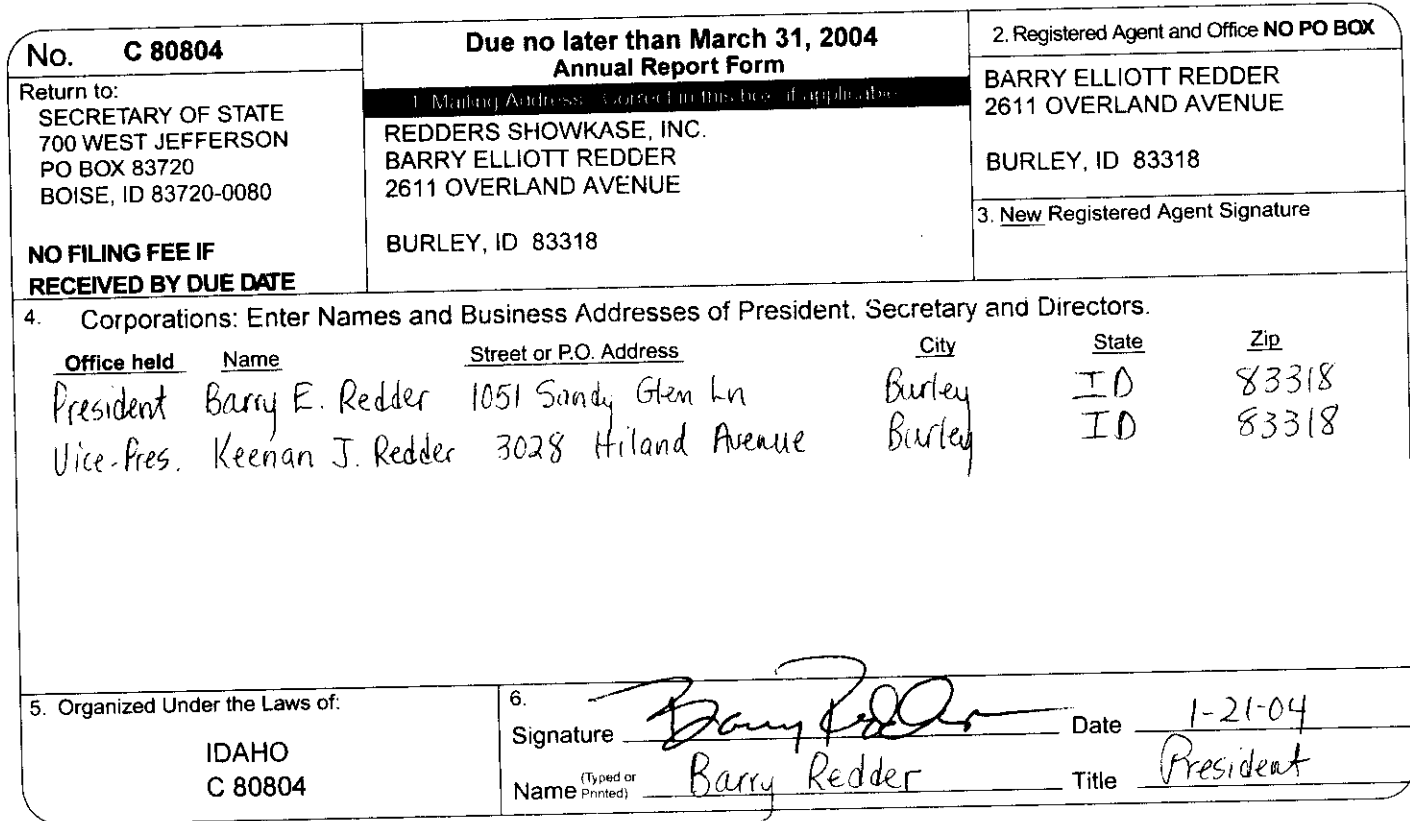 No. C 80804
Return to:
SECRETARY OF STATE
700 WEST JEFFERSON
PO BOX 83720
BOISE, ID 83720-0080
NO FILING FEE IF
RECEIVED BY DUE DATE
Due no later than March 31, 2004
Annual Report Form
1. Mailing Address: Correct in this box, if applicable
REDDERS SHOWKASE, INC.
BARRY ELLIOTT REDDER
2611 OVERLAND AVENUE
BURLEY, ID 83318
2. Registered Agent and Office NO PO BOX
BARRY ELLIOTT REDDER
2611 OVERLAND AVENUE
BURLEY, ID 83318
3. New Registered Agent Signature
4. Corporations: Enter Names and Business Addresses of President. Secretary and Directors.
Office held Name Street or P.O. Address City State Zip
President Barry E. Redder 1051 Sandy Glen Ln Burley ID 83318
Vice-Pres. Keenan J. Redder 3028 Hiland Avenue Burley ID 83318
5. Organized Under the Laws of:
IDAHO
C 80804
6.
Signature Barry Redder Date 1-21-04
Name (Typed or Printed) Barry Redder Title President